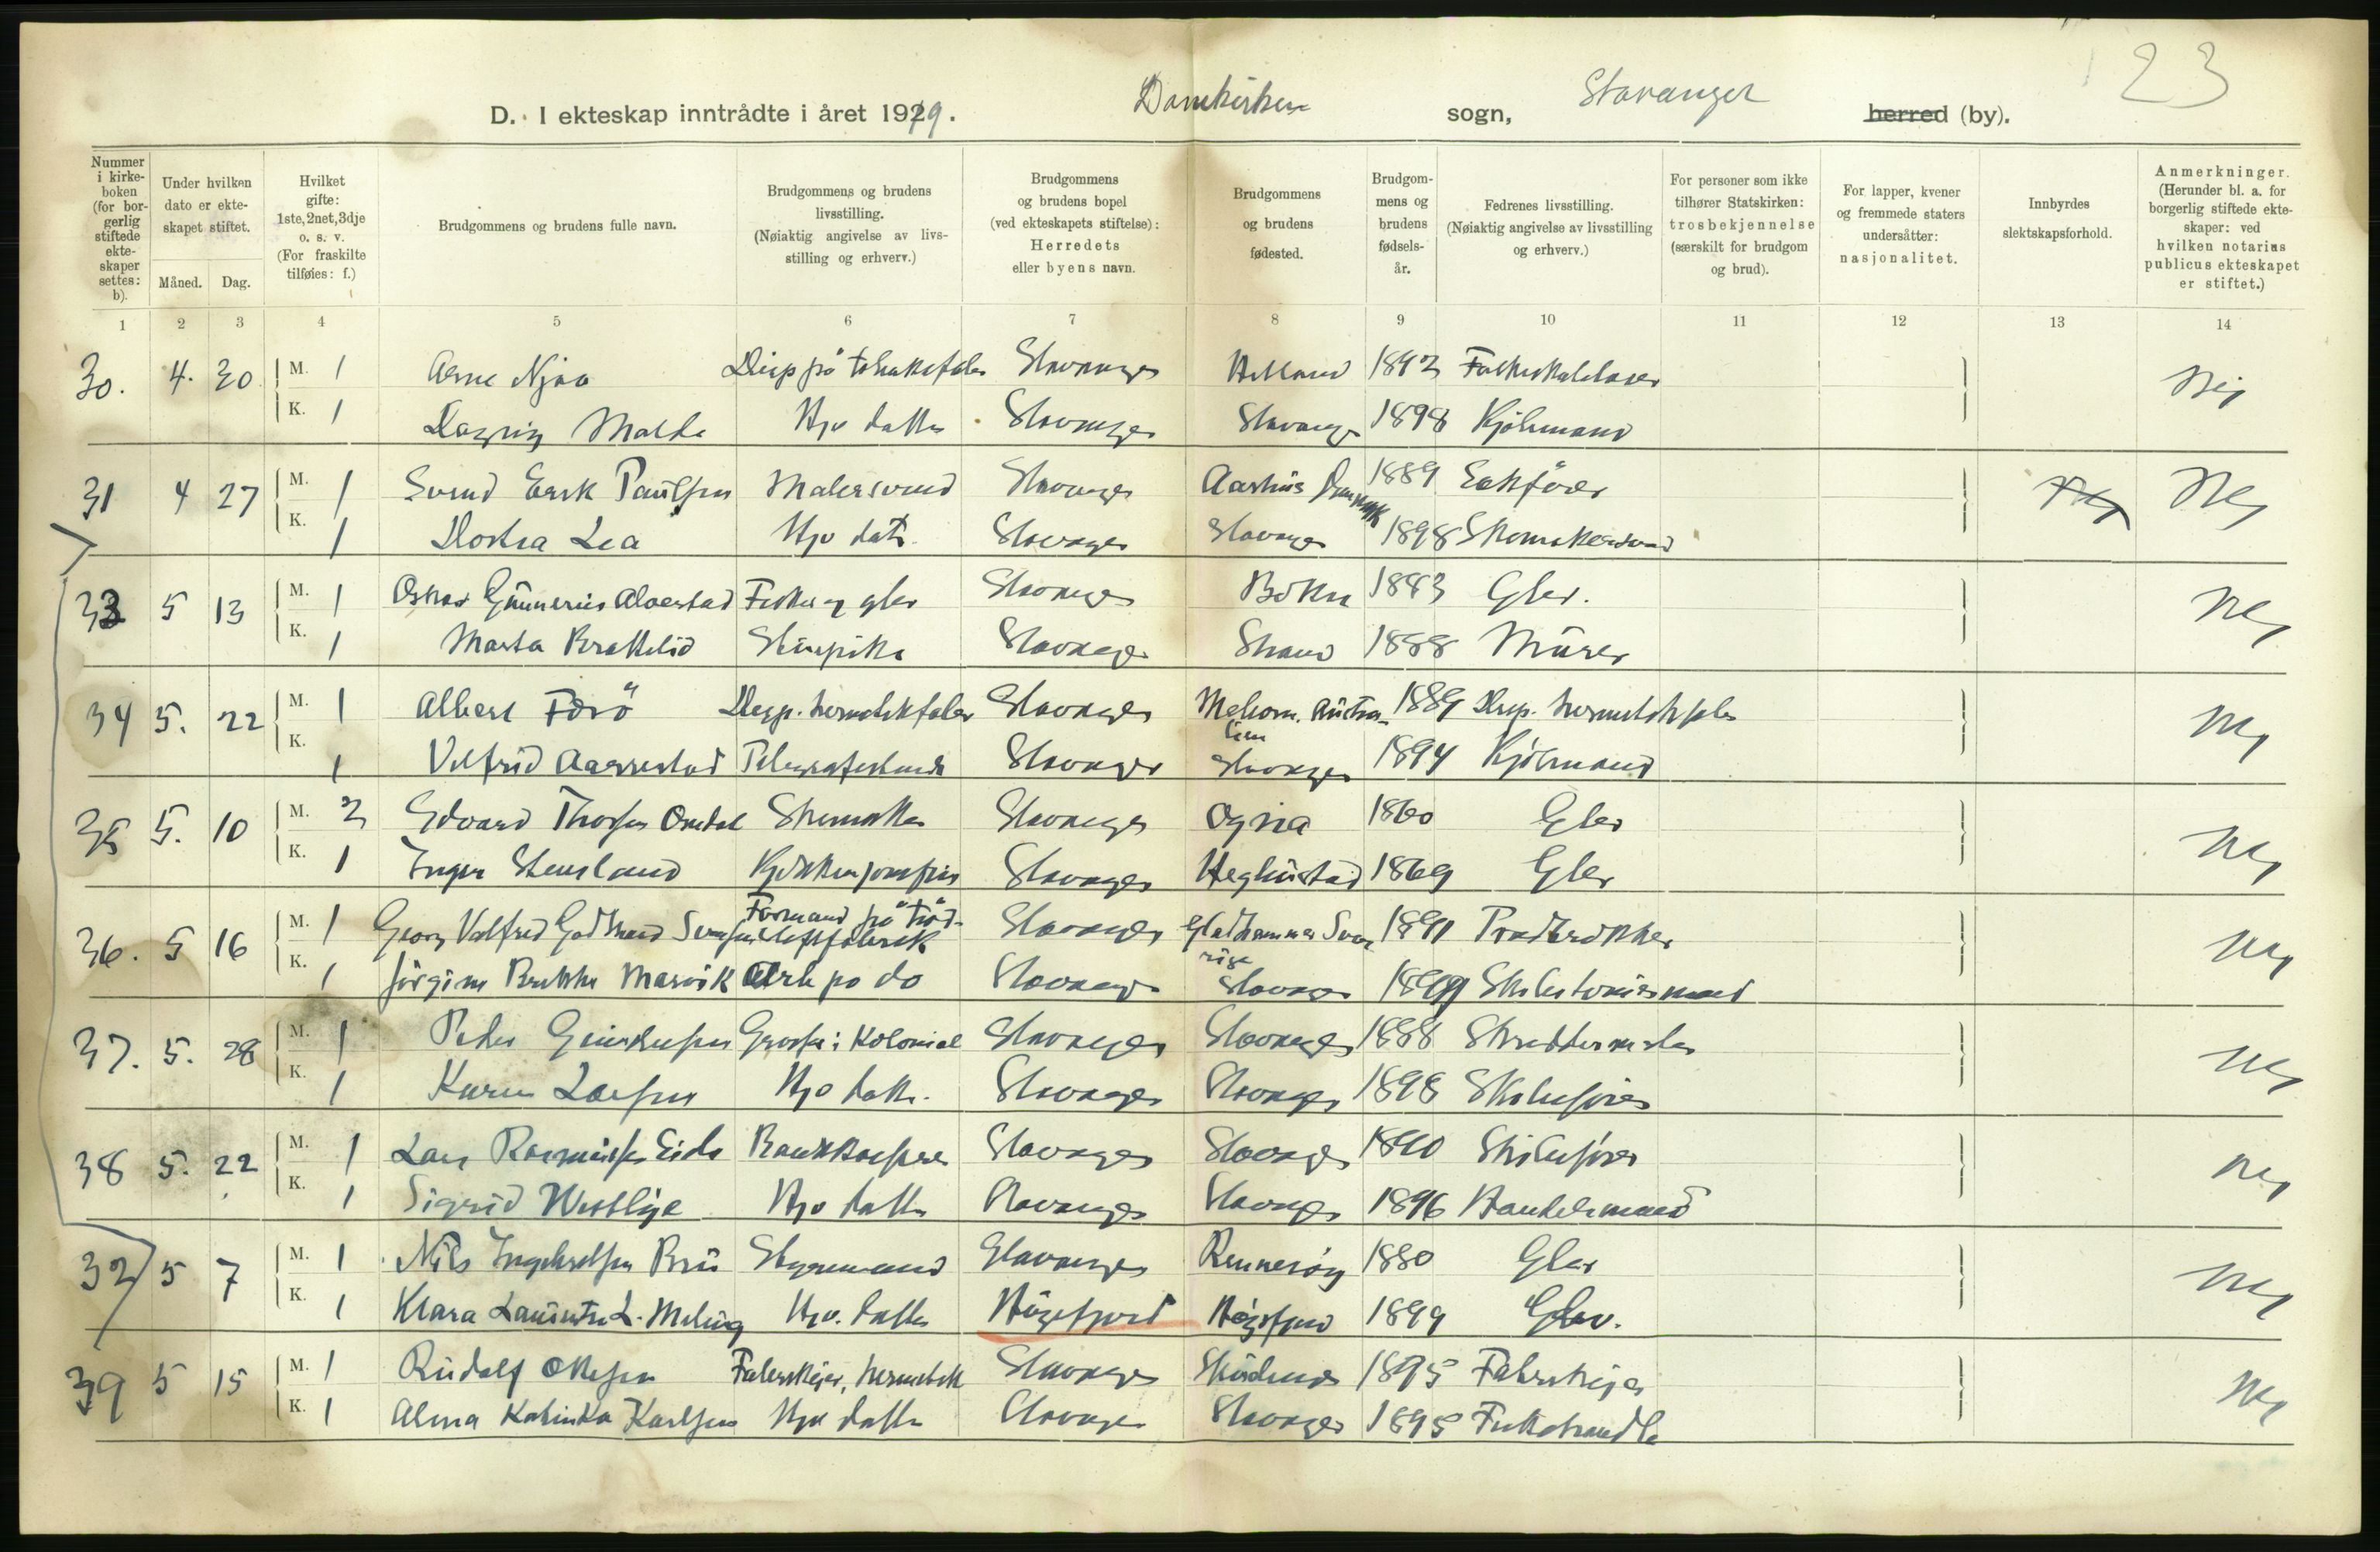 23
D. I ekteskap inntrådte i året 1919. Domkirken sogn, Stavanger herred (by).
Nummer i kirkeboken (for borgerlig stiftede ekteskaper settes: b).
Under hvilken dato er ekteskapet stiftet.
Måned. Dag.
Hvilket gifte: 1ste, 2net, 3dje o. s. v. (For fraskilte tilføies: f.)
Brudgommens og brudens fulle navn.
Brudgommens og brudens livsstilling. (Nøiaktig angivelse av livsstilling og erhverv.)
Brudgommens og brudens bopel (ved ekteskapets stiftelse): Herredets eller byens navn.
Brudgommens og brudens fødested.
Brudgommens og brudens fødselsår.
Fedrenes livsstilling. (Nøiaktig angivelse av livsstilling og erhverv.)
For personer som ikke tilhører Statskirken: trosbekjennelse (særskilt for brudgom og brud).
For lapper, kvener og fremmede staters undersåtter: nasjonalitet.
Innbyrdes slektskapsforhold.
Anmerkninger. (Herunder bl. a. for borgerlig stiftede ekteskaper: ved hvilken notarius publicus ekteskapet er stiftet.)
1 2 3 4 5 6 7 8 9 10 11 12 13 14
30. 4. 30 M. 1 Arne Njaa Stavanger Nei
K. 1 Malde Hjv datter Stavanger Stavanger 1898 Kjøbmand
31 4 27 M. 1 Svend Erik Paulsen Malersvend Stavanger Aarhus Danmark 1889 Nei
K. 1 Lea Hjv dat. Stavanger Stavanger 1898 Skomakersvend
33 5 13 M. 1 Oskar Gunnerius Alvestad Fisker og gbr Stavanger Bokn 1883 Gbr. Nei
K. 1 Marta Brattelid Stuepike Stavanger Strand 1888 Murer
34 5. 22 M. 1 Albert Stavanger 1889 Disp. hermetikfabr Nei
K. 1 Valfrid Aarrestad Telegrafistinde Stavanger Stavanger 1894 Kjøbmand
35 5. 10 M. 2 Edvard Thorsen Skomaker Stavanger Ogna 1860 Gbr Nei
K. 1 Inger Stensland Kjøkkenjomfru Stavanger Heglustad 1869 Gbr
36. 5 16 M. 1 Georg Valfred Gotthard Formand på Stavanger 1891 Nei
K. 1 Jørgine Bukke Marvik Arb på do Stavanger Stavanger
37. 5. 28 M. 1 Peder Gundersen Grosser i Kolonial Stavanger Stavanger 1888 Skræddermester Nei
K. 1 Karen Larsen Hjv datt. Stavanger Stavanger 1898 Skibsfører
38 5. 22 M. 1 Lars Rasmussen Eide Bankkasserer Stavanger Stavanger 1890 Skibsfører Nei
K. 1 Sigrid Westlye Hjv datter Stavanger Stavanger 1896 Handelsmand
32 5 7 M. 1 Nils Ingebretsen Bru Styrmand Stavanger Rennesøy 1880 Gbr Nei
K. 1 Klara Laurentse L. Meling Hjv. datter Høgsfjord Høgsfjord 1899 Gbr.
39 5 15 M. 1 Rudolf Olsen Fabrikeier, hermetik Stavanger 1895 Fabrikeier Nei
K. 1 Alma Katinka Karlsen Hjv datter Stavanger Stavanger 1895